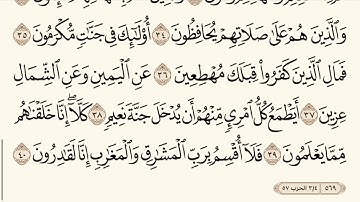 وَالَّذِينَ هُمْ عَلَىٰ صَلَاتِهِمْ يُحَافِظُونَ ٣٤ أُوْلَٰٓئِكَ فِي جَنَّٰتٍ مُّكْرَمُونَ ٣٥
فَمَالِ الَّذِينَ كَفَرُوا۟ قِبَلَكَ مُهْطِعِينَ ٣٦ عَنِ الْيَمِينِ وَعَنِ الشِّمَالِ
عِزِينَ ٣٧ أَيَطْمَعُ كُلُّ امْرِئٍ مِّنْهُمْ أَن يُدْخَلَ جَنَّةَ نَعِيمٍ ٣٨ كَلَّآ ۖ إِنَّا خَلَقْنَاهُم
مِّمَّا يَعْلَمُونَ ٣٩ فَلَآ أُقْسِمُ بِرَبِّ الْمَشَارِقِ وَالْمَغَارِبِ إِنَّا لَقَادِرُونَ ٤٠
٥٦٩ ٣/٤ الحزب ٥٧